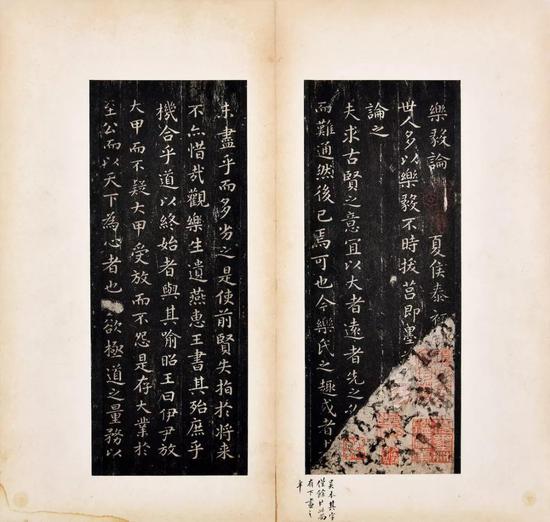 樂毅論 夏侯泰初
世人多以樂毅不時拔莒即墨
論之
夫求古賢之意宜以大者遠者先之必
而難通然後已焉可也今樂氏之趣或者
未盡乎而多劣之是使前賢失指於將來
不亦惜哉觀樂生遺燕惠王書其殆庶乎
機合乎道以終始者與其喻昭王曰伊尹放
大甲而不疑大甲受放而不怨是存大業於
至公而以天下為心者也 欲極道之量務以
吳本其字